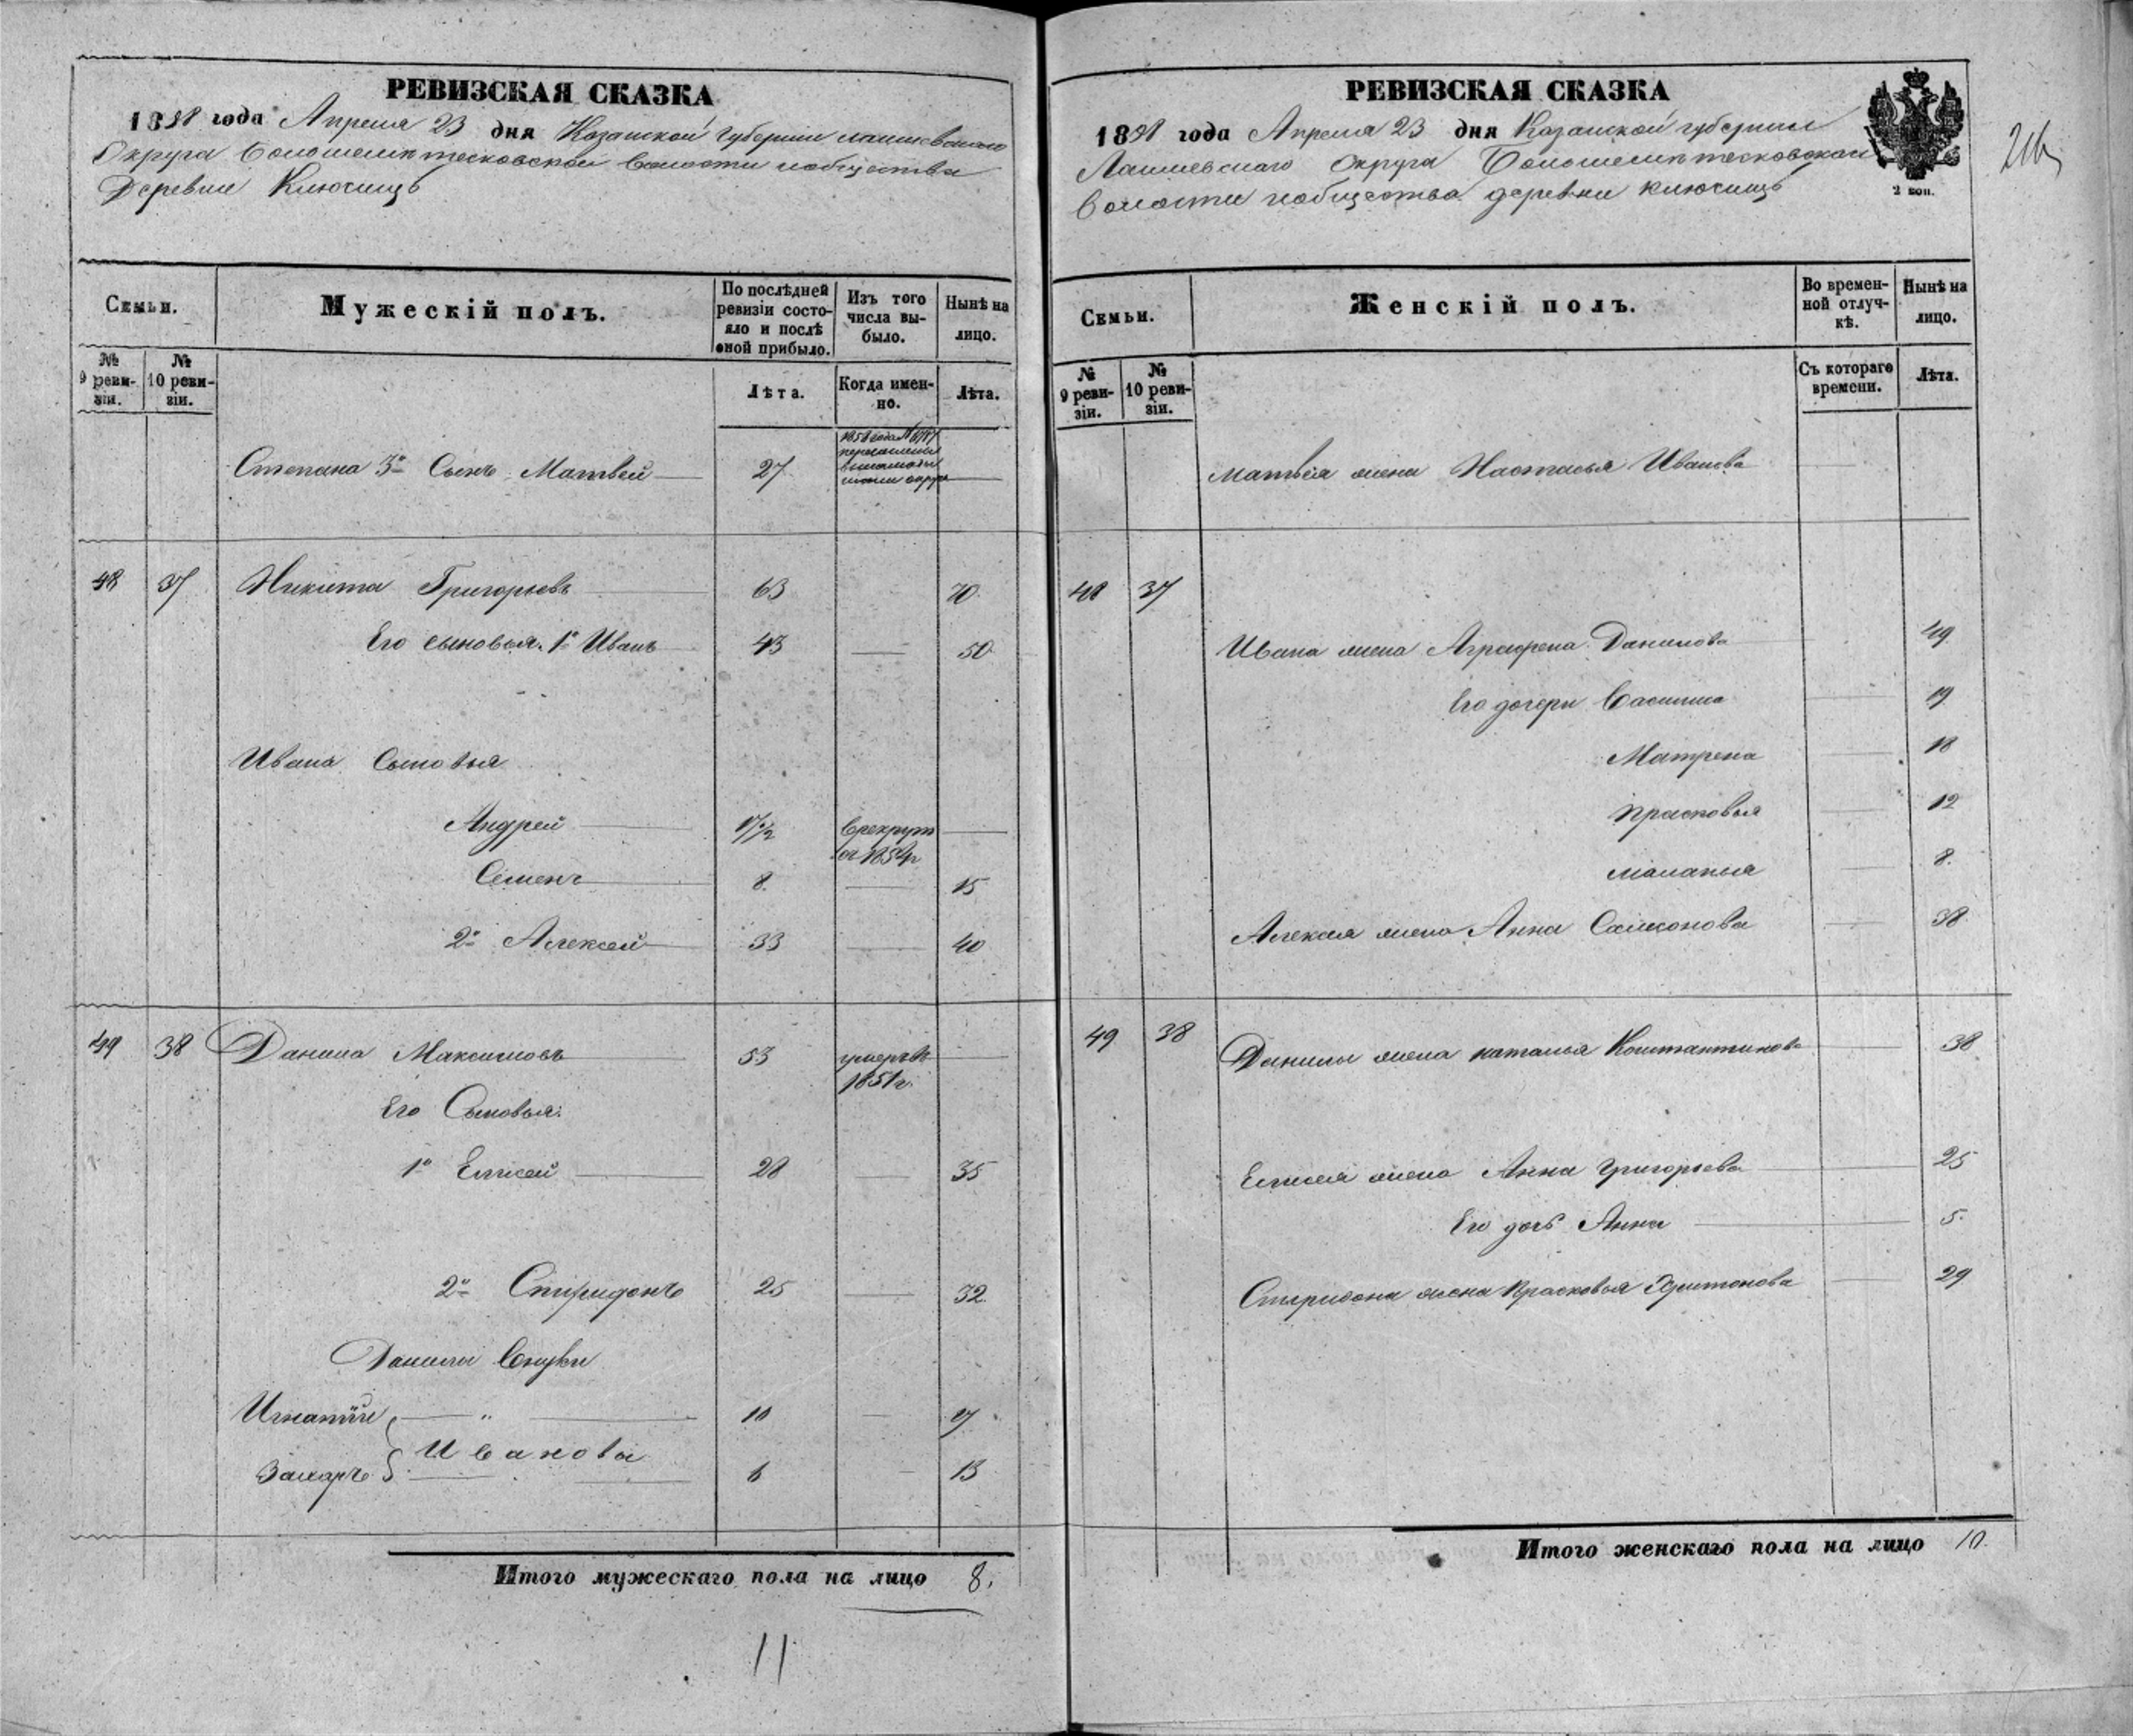 РЕВИЗСКАЯ СКАЗКА
1858 года Апреля 23 дня Казанской губернии Лаишевскаго
Округа волости и общества
Деревни Ключищъ
Семьи.
Мужескій полъ.
По послѣдней ревизіи состояло и послѣ оной прибыло.
Изъ того числа выбыло.
Нынѣ на лицо.
№ 9 ревизіи.
№ 10 ревизіи.
Лѣта.
Когда именно.
Лѣта.
Степана 3й Сынъ Матвей 27 1858 года
48 37 Никита Григорьевъ 63 70
Его сыновья 1й Иванъ 43 50
Ивана Сыновья
Андрей 17 1/2 в рекруты 1854г
Семенъ 8 15
2й Алексей 33 40
49 38 Данила Максимовъ 53 умеръ в 1851г.
Его Сыновья:
1й Елисей 28 35
2й Спиридонъ 25 32
Данилы Внуки
Игнатій 10 17
Ивановы
Захаръ 6 13
Итого мужескаго пола на лицо 8.
11
РЕВИЗСКАЯ СКАЗКА
1858 года Апреля 23 дня Казанской губернии
Лаишевскаго Округа
Волости и общества деревни Ключищъ
2 коп.
Семьи.
Женскій полъ.
Во временной отлучкѣ.
Нынѣ на лицо.
№ 9 ревизіи.
№ 10 ревизіи.
Съ котораго времени.
Лѣта.
Матвея жена Настасья Иванова
48 37
Ивана жена Аграфена Данилова 49
Его дочери Василиса 19
Матрена 18
Прасковья 12
Маланья 8.
Алексея жена Анна Самсонова 38
49 38 Данилы жена Наталья Константинова 38
Елисея жена Анна Григорьева 25
Его дочь Анна 5.
Спиридона жена Прасковья Харитонова 29
Итого женскаго пола на лицо 10.